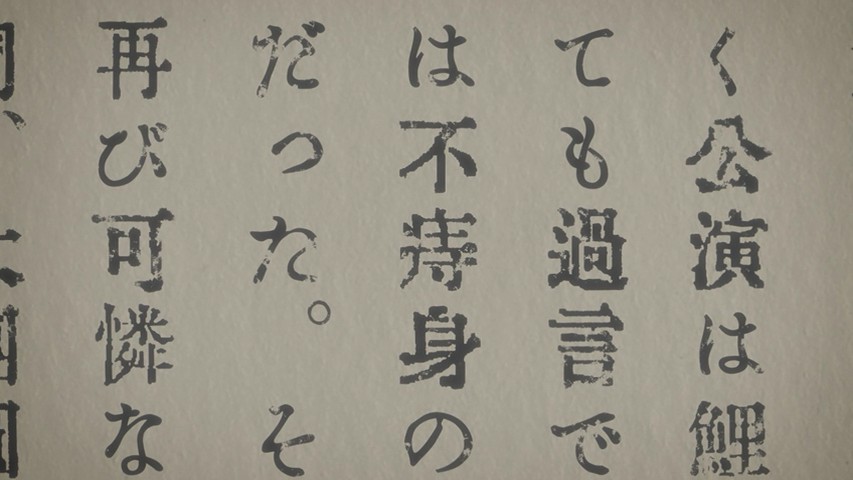 く公演は鯉
ても過言で
は不痔身の
だった。そ
再び可憐な